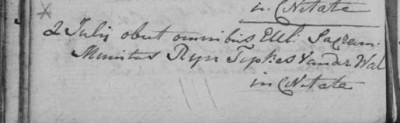 in CNitate
2 Julij obiit omnibus Eccl: Sacram:
Munitus Ryn Tjepkes Vander Wal
in CNitate